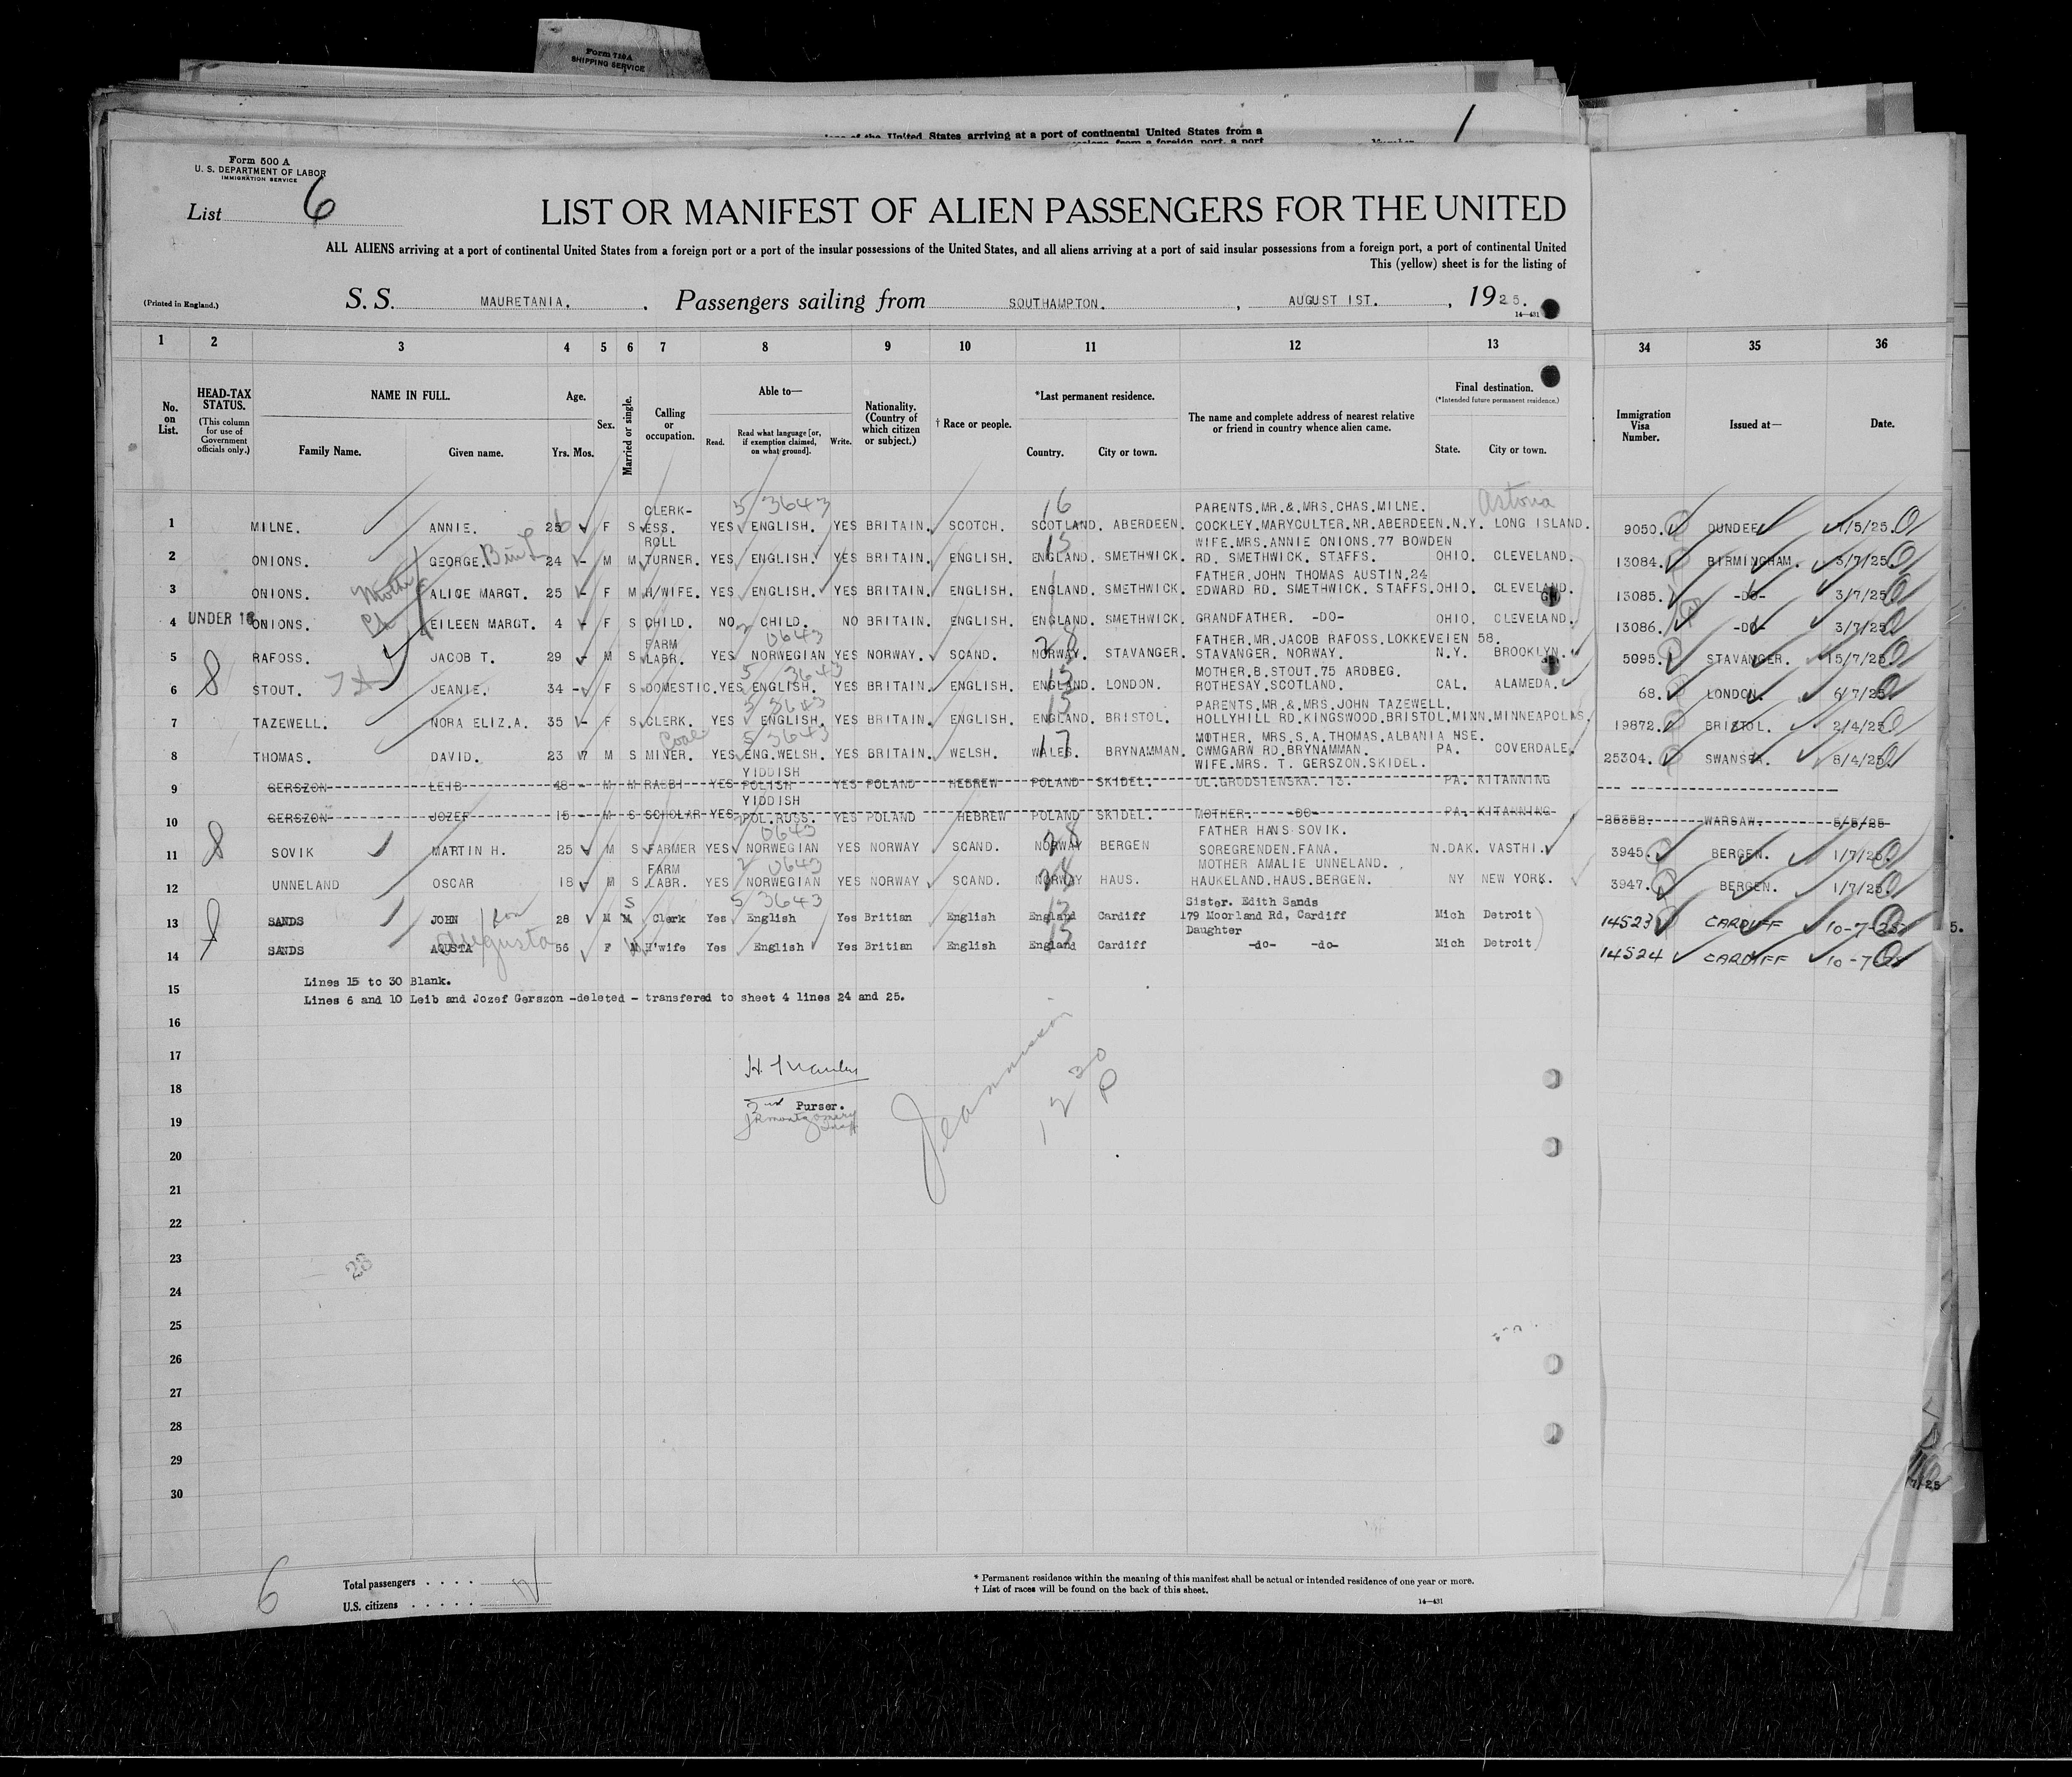 Form 730A
SHIPPING SERVICE
of the United States arriving at a port of continental United States from a
1
Form 500 A
U. S. DEPARTMENT OF LABOR
IMMIGRATION SERVICE
List 6
LIST OR MANIFEST OF ALIEN PASSENGERS FOR THE UNITED
ALL ALIENS arriving at a port of continental United States from a foreign port or a port of the insular possessions of the United States, and all aliens arriving at a port of said insular possessions from a foreign port, a port of continental United
This (yellow) sheet is for the listing of
(Printed in England.)
S. S. MAURETANIA. , Passengers sailing from SOUTHAMPTON. , AUGUST 1ST. , 1925.
14—431
1 2 3 4 5 6 7 8 9 10 11 12 13 34 35 36
No. on List.
HEAD-TAX STATUS.
(This column for use of Government officials only.)
NAME IN FULL.
Family Name. Given name.
Age.
Yrs. Mos.
Sex.
Married or single.
Calling or occupation.
Able to—
Read. Read what language [or, if exemption claimed, on what ground]. Write.
Nationality. (Country of which citizen or subject.)
† Race or people.
*Last permanent residence.
Country. City or town.
The name and complete address of nearest relative or friend in country whence alien came.
Final destination.
(*Intended future permanent residence.)
State. City or town.
Immigration Visa Number.
Issued at—
Date.
5/3643 16 Astoria
CLERK- PARENTS.MR.&.MRS.CHAS.MILNE.
1 MILNE. ANNIE. 25 F S ESS. YES ENGLISH. YES BRITAIN. SCOTCH. SCOTLAND. ABERDEEN. COCKLEY.MARYCULTER.NR.ABERDEEN.N.Y. LONG ISLAND. 9050. DUNDEE /5/25.
ROLL 15 WIFE.MRS.ANNIE ONIONS.77 BOWDEN
2 ONIONS. GEORGE. 24 - M M TURNER. YES ENGLISH. YES BRITAIN. ENGLISH. ENGLAND. SMETHWICK. RD. SMETHWICK. STAFFS. OHIO. CLEVELAND. 13084. BIRMINGHAM. 3/7/25
Mother FATHER.JOHN THOMAS AUSTIN.24
3 ONIONS. ALICE MARGT. 25 - F M H/WIFE. YES ENGLISH. YES BRITAIN. ENGLISH. ENGLAND. SMETHWICK. EDWARD RD. SMETHWICK. STAFFS. OHIO. CLEVELAND. 13085. -DO- 3/7/25
4 UNDER 16 ONIONS. EILEEN MARGT. 4 - F S CHILD. NO CHILD. NO BRITAIN. ENGLISH. ENGLAND. SMETHWICK. GRANDFATHER. -DO- OHIO. CLEVELAND. 13086. -DO- 3/7/25
FARM 2 0643 28 FATHER.MR.JACOB RAFOSS.LOKKEVEIEN 58.
5 RAFOSS. JACOB T. 29 - M S LABR. YES NORWEGIAN YES NORWAY. SCAND. NORWAY. STAVANGER. STAVANGER. NORWAY. N.Y. BROOKLYN. 5095. STAVANGER. 15/7/25
5 3643 15 MOTHER.B.STOUT.75 ARDBEG.
6 8 STOUT. JEANIE. 34 - F S DOMESTIC.YES ENGLISH. YES BRITAIN. ENGLISH. ENGLAND. LONDON. ROTHESAY.SCOTLAND. CAL. ALAMEDA. 68. LONDON. 6/7/25
5 3643 15 PARENTS.MR.&.MRS.JOHN TAZEWELL.
7 TAZEWELL. NORA ELIZ.A. 35 - F S CLERK. YES ENGLISH. YES BRITAIN. ENGLISH. ENGLAND. BRISTOL. HOLLYHILL RD.KINGSWOOD.BRISTOL.MINN.MINNEAPOLIS. 19872. BRISTOL. 2/4/25
Coal 5 3643 17 MOTHER. MRS.S.A.THOMAS.ALBANIA HSE.
8 THOMAS. DAVID. 23 7 M S MINER. YES ENG.WELSH. YES BRITAIN. WELSH. WALES. BRYNAMMAN. CWMGARW RD.BRYNAMMAN. PA. COVERDALE. 25304. SWANSEA. 8/4/25
YIDDISH WIFE.MRS. T. GERSZON.SKIDEL.
9 GERSZON LEIB 48 - M M RABBI YES POLISH YES POLAND HEBREW POLAND SKIDEL. UL.GRODSIENSKA. 13. PA. KITANNING
YIDDISH
10 GERSZON JOZEF 15 - M S SCHOLAR YES POL.RUSS. YES POLAND HEBREW POLAND SKIDEL. MOTHER. -DO- PA. KITANNING 25352. WARSAW. 5/5/25
0643 28 FATHER HANS SOVIK.
11 8 SOVIK MARTIN H. 25 M S FARMER YES NORWEGIAN YES NORWAY SCAND. NORWAY BERGEN SOREGRENDEN.FANA. N.DAK. VASTHI. 3945. BERGEN. 1/7/25.
FARM 2 0643 28 MOTHER AMALIE UNNELAND.
12 UNNELAND OSCAR 18 - M S LABR. YES NORWEGIAN YES NORWAY SCAND. NORWAY HAUS. HAUKELAND.HAUS.BERGEN. NY NEW YORK. 3947. BERGEN. 1/7/25.
S 5 3643 15 Sister. Edith Sands
13 SANDS JOHN son 28 M M Clerk Yes English Yes Britian English England Cardiff 179 Moorland Rd, Cardiff Mich Detroit 14523 CARDIFF 10-7-25
Augusta 15 Daughter
14 SANDS AQUSTA 56 F M H'wife Yes English Yes Britian English England Cardiff -do- -do- Mich Detroit 14524 CARDIFF 10-7-25
5.
Lines 15 to 30 Blank.
15
Lines 6 and 10 Leib and Jozef Gerszon -deleted - transfered to sheet 4 lines 24 and 25.
16
17
18
2nd Purser.
19
JRMontgomery
Jeannisson
1230 P
20
21
22
23
23
24
25
26
27
28
29
30
7/25
6
Total passengers . . . .
U.S. citizens . . . . .
* Permanent residence within the meaning of this manifest shall be actual or intended residence of one year or more.
† List of races will be found on the back of this sheet.
14—431